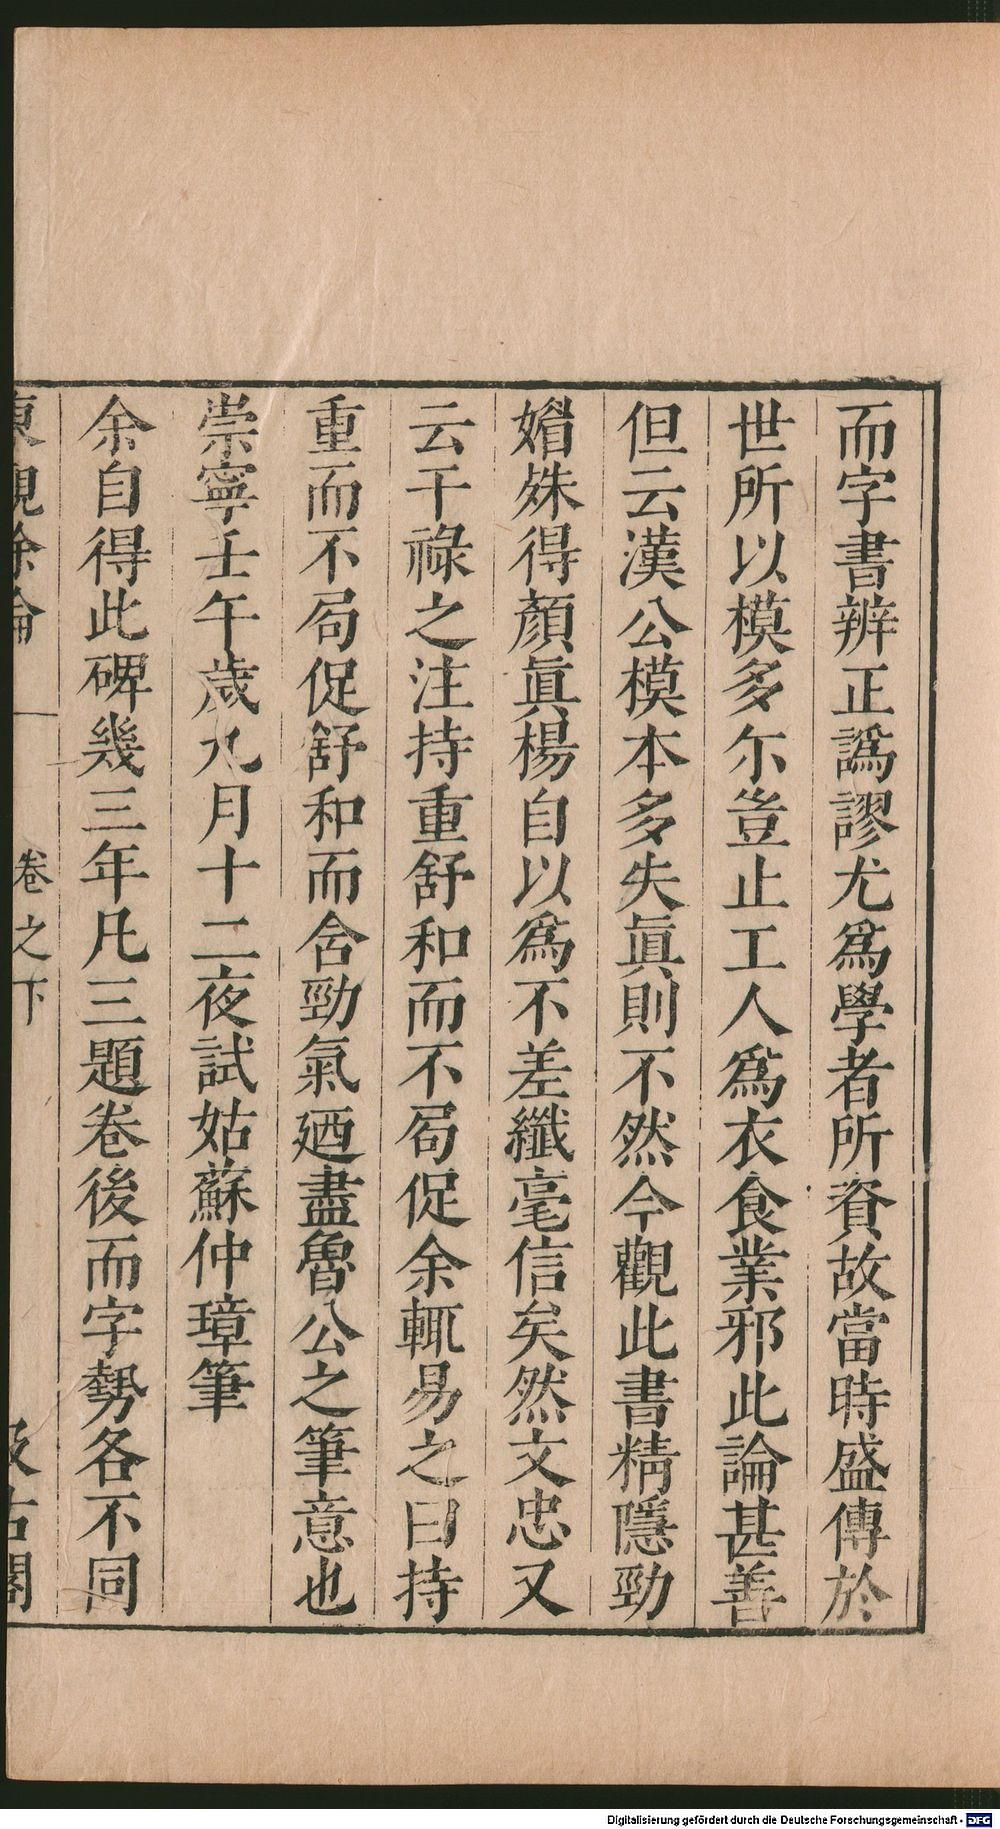 而字書辨正譌謬尤爲學者所資故當時盛傳於
世所以模多尓豈止工人爲衣食業邪此論甚善
但云漢公模本多失眞則不然今觀此書精隱勁
媚殊得顏眞楊自以爲不差纖毫信矣然文忠又
云干祿之注持重舒和而不局促余輒易之曰持
重而不局促舒和而含勁氣廼盡魯公之筆意也
崇寧壬午歲九月十二夜試姑蘇仲璋筆
余自得此碑幾三年凡三題卷後而字勢各不同
東觀餘論 卷之下 汲古閣
Digitalisierung gefördert durch die Deutsche Forschungsgemeinschaft - DFG